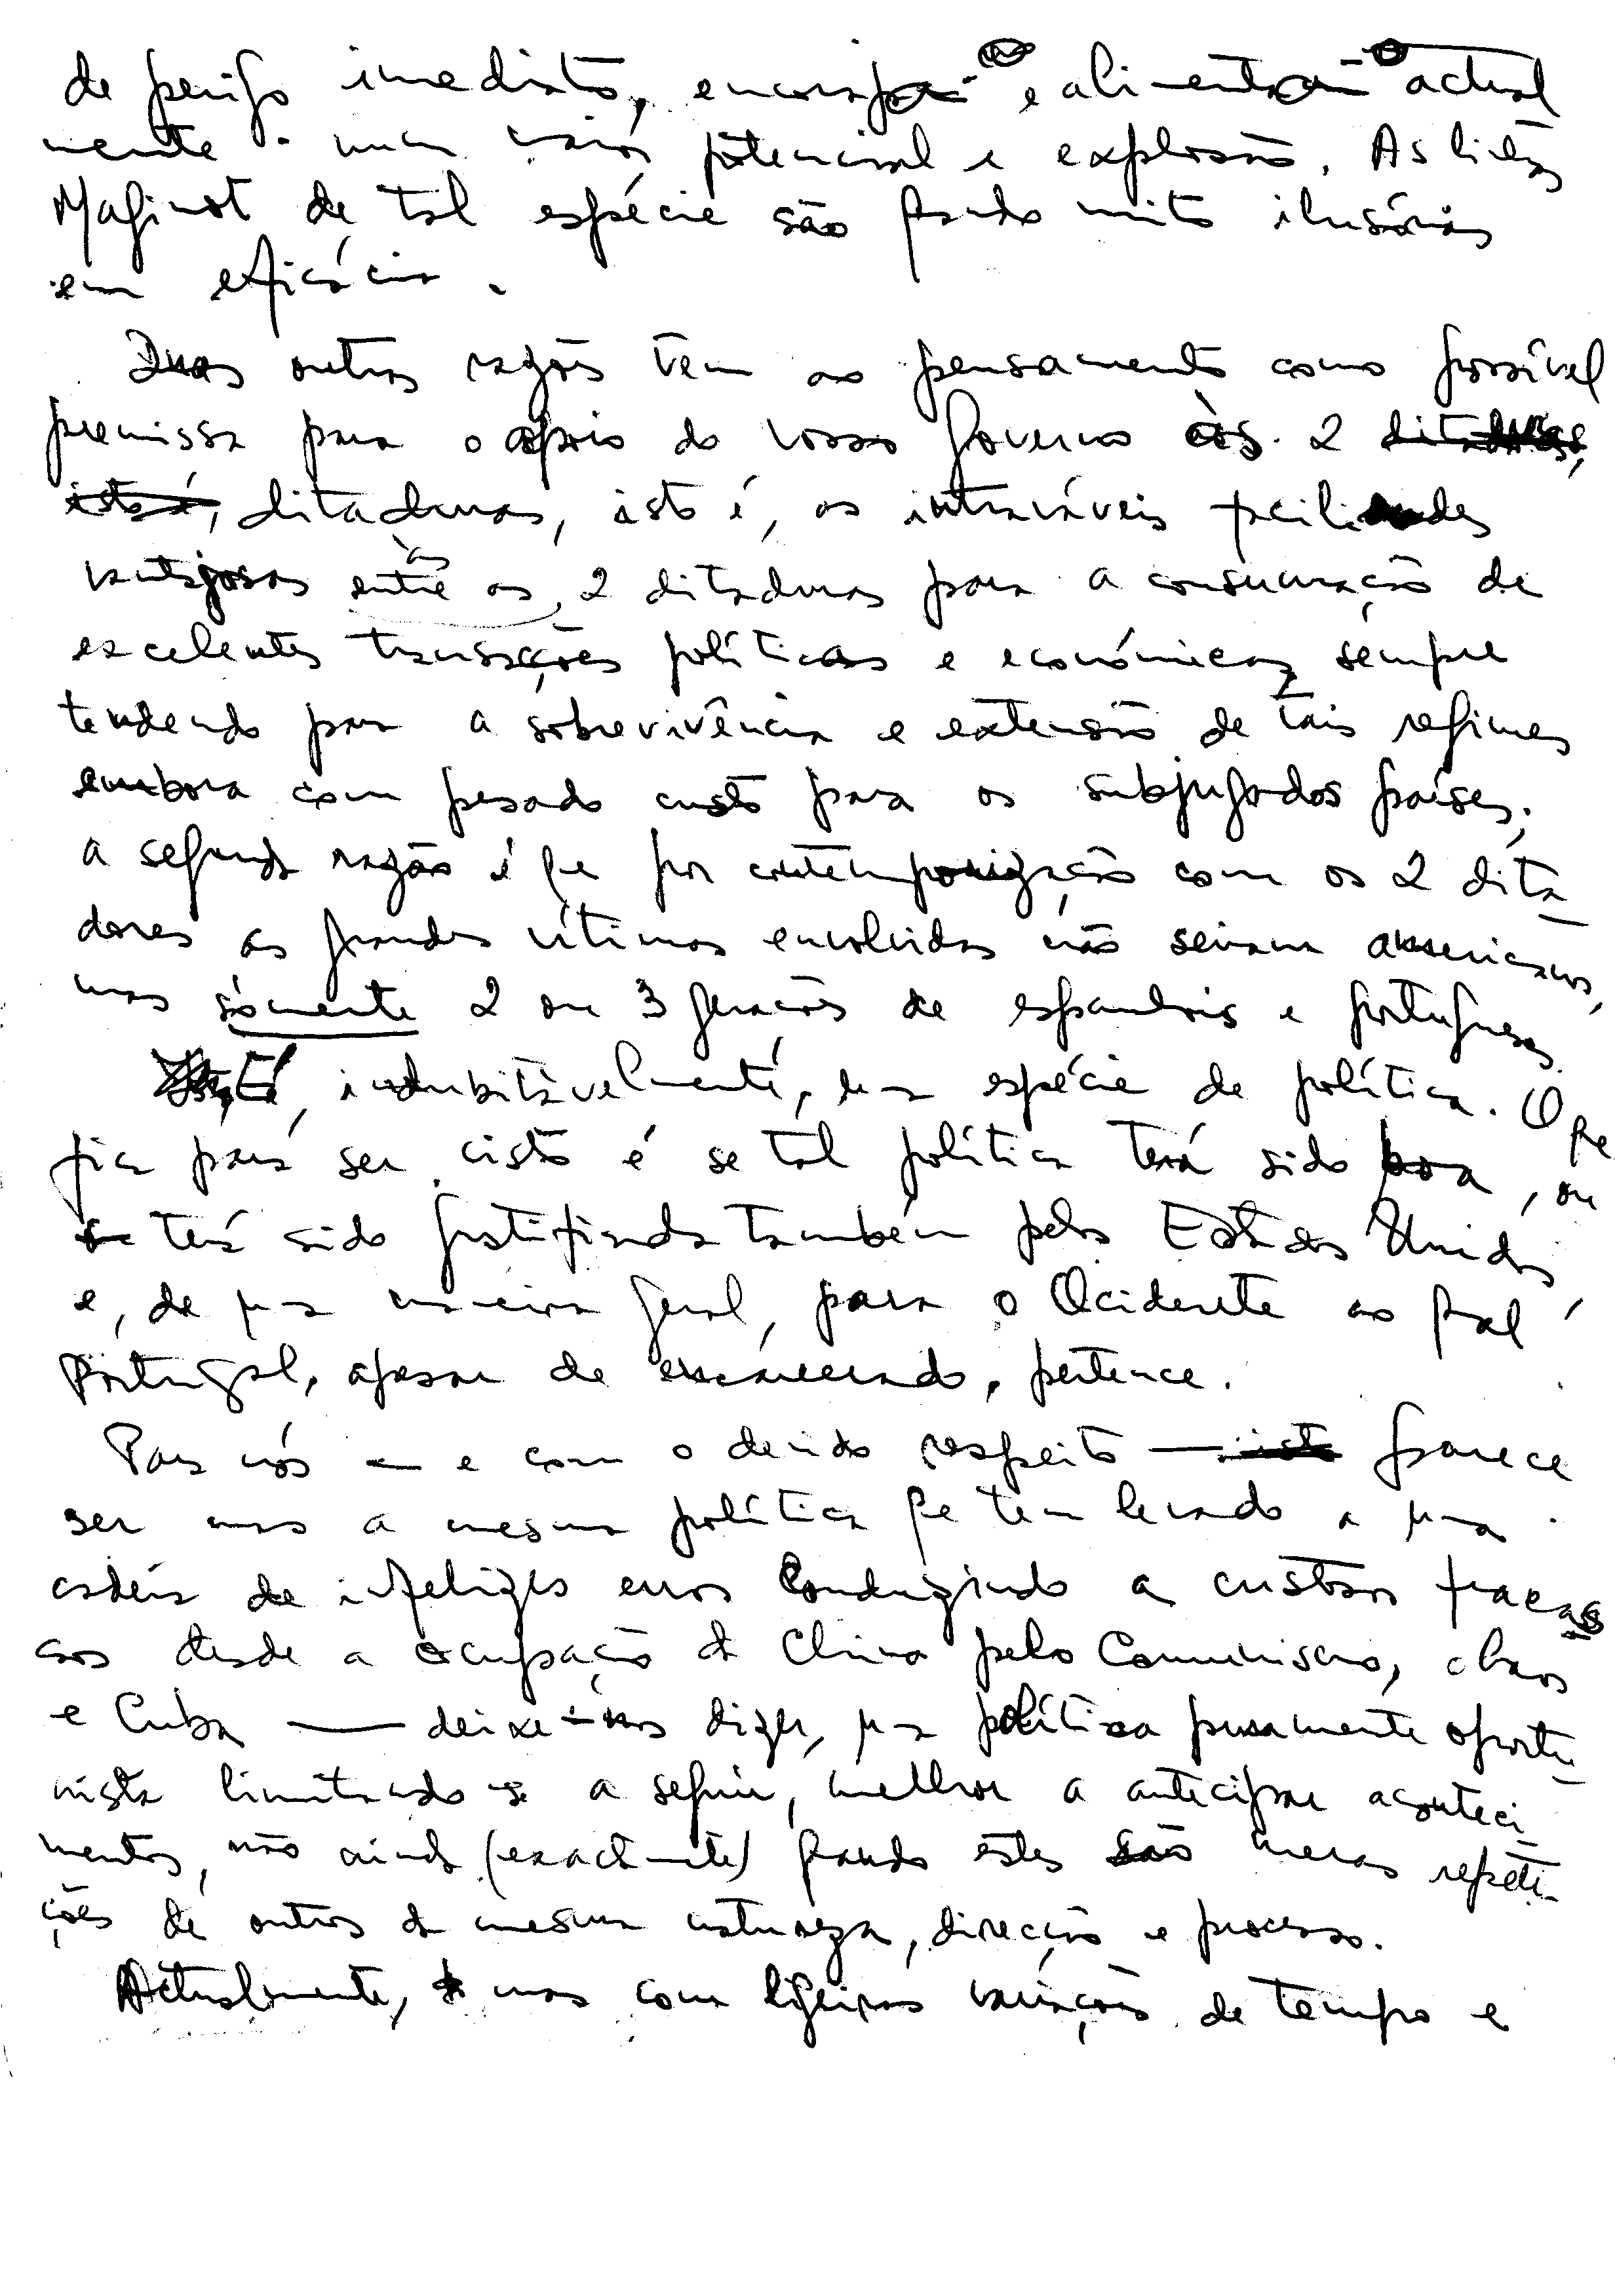 de perigo imediato, encoraja e alimenta actual
mente um maior potencial e explosão. As linhas
Maginot de tal espécie são quando muito ilusórias
em eficácia.
Duas outras razões vêm ao pensamento como possível
premissa para o apoio do vosso Governo às 2
ditaduras, isto é, as facilidades
vantajosas às 2 ditaduras para a consumação de
excelentes transacções políticas e económicas sempre
tendendo para a sobrevivência e extensão de tais regimes
embora com pesado custo para os subjugados países;
a segunda razão é que por contemporização com os 2 dita
dores as grandes vítimas envolvidas não seriam americanos,
mas sòmente 2 ou 3 gerações de espanhois e portugueses.
É, indubitàvelmente, uma espécie de política. O que
fica para ser visto é se tal política terá sido boa, ou
se terá sido justificada também pelos Estados Unidos
e, de uma maneira geral, para o Ocidente ao qual
Portugal, apesar de encarcerado, pertence.
Para nós — e com o devido respeito — parece
ser mas a mesma política que tem levado a uma
cadeia de infelizes erros conduzindo a custosos fracas
sos desde a ocupação da China pelo Comunismo, Laos
e Cuba — deixe-nos dizer, uma política puramente oportu
nista limitando-se a seguir, melhor a antecipar aconteci
mentos, não ainda (exactamente) quando estes são meras repeti-
ções de outros da mesma natureza, direcção e processo.
Actualmente, mas com ligeiras variações de tempo e